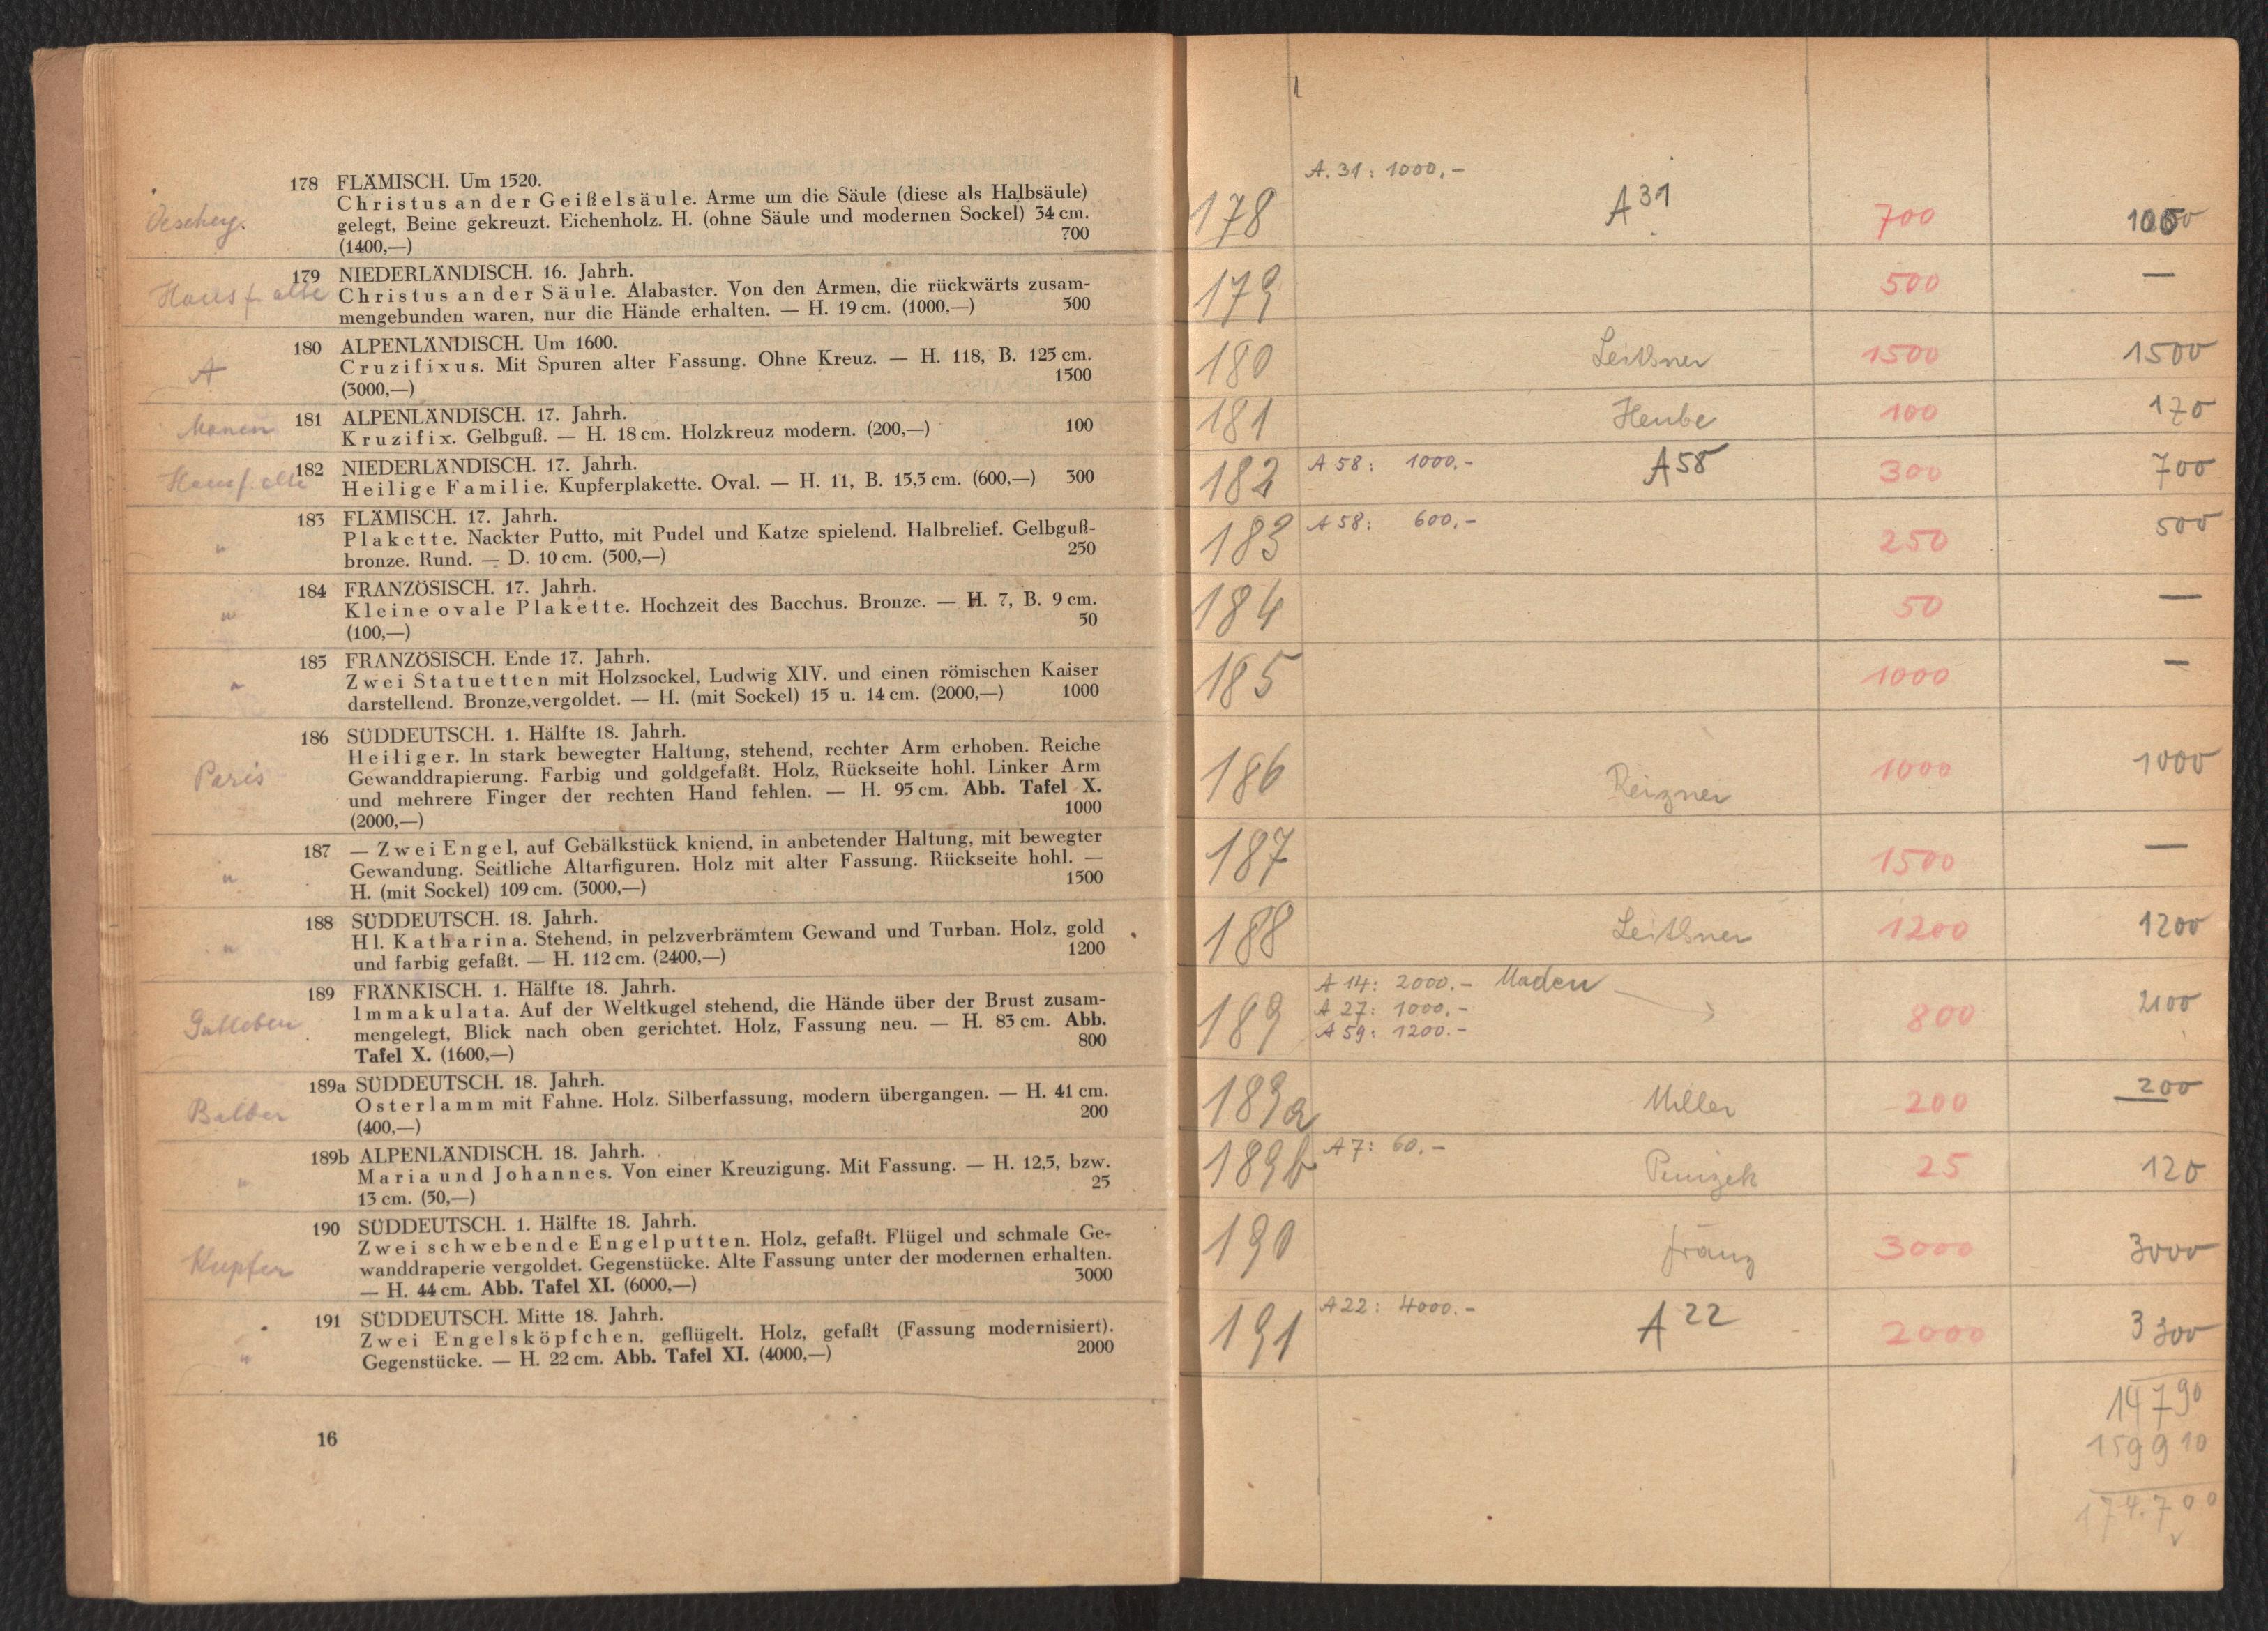 178 FLÄMISCH. Um 1520.
Christus an der Geißelsäule. Arme um die Säule (diese als Halbsäule)
gelegt, Beine gekreuzt. Eichenholz. H. (ohne Säule und modernen Sockel) 34 cm.
(1400,—) 700
Haus f. alte
179 NIEDERLÄNDISCH. 16. Jahrh.
Christus an der Säule. Alabaster. Von den Armen, die rückwärts zusam-
mengebunden waren, nur die Hände erhalten. — H. 19 cm. (1000,—) 500
A
180 ALPENLÄNDISCH. Um 1600.
Cruzifixus. Mit Spuren alter Fassung. Ohne Kreuz. — H. 118, B. 125 cm.
(3000,—) 1500
181 ALPENLÄNDISCH. 17. Jahrh.
Kruzifix. Gelbguß. — H. 18 cm. Holzkreuz modern. (200,—) 100
Haus f. alte
182 NIEDERLÄNDISCH. 17. Jahrh.
Heilige Familie. Kupferplakette. Oval. — H. 11, B. 15,5 cm. (600,—) 300
183 FLÄMISCH. 17. Jahrh.
Plakette. Nackter Putto, mit Pudel und Katze spielend. Halbrelief. Gelbguß-
bronze. Rund. — D. 10 cm. (500,—) 250
"
184 FRANZÖSISCH. 17. Jahrh.
Kleine ovale Plakette. Hochzeit des Bacchus. Bronze. — H. 7, B. 9 cm.
(100,—) 50
"
185 FRANZÖSISCH. Ende 17. Jahrh.
Zwei Statuetten mit Holzsockel, Ludwig XIV. und einen römischen Kaiser
darstellend. Bronze,vergoldet. — H. (mit Sockel) 15 u. 14 cm. (2000,—) 1000
"
186 SÜDDEUTSCH. 1. Hälfte 18. Jahrh.
Heiliger. In stark bewegter Haltung, stehend, rechter Arm erhoben. Reiche
Gewanddrapierung. Farbig und goldgefaßt. Holz, Rückseite hohl. Linker Arm
und mehrere Finger der rechten Hand fehlen. — H. 95 cm. Abb. Tafel X.
(2000,—) 1000
Paris
187 — Zwei Engel, auf Gebälkstück kniend, in anbetender Haltung, mit bewegter
Gewandung. Seitliche Altarfiguren. Holz mit alter Fassung. Rückseite hohl. —
H. (mit Sockel) 109 cm. (3000,—) 1500
"
188 SÜDDEUTSCH. 18. Jahrh.
Hl. Katharina. Stehend, in pelzverbrämtem Gewand und Turban. Holz, gold
und farbig gefaßt. — H. 112 cm. (2400,—) 1200
"
189 FRÄNKISCH. 1. Hälfte 18. Jahrh.
Immakulata. Auf der Weltkugel stehend, die Hände über der Brust zusam-
mengelegt, Blick nach oben gerichtet. Holz, Fassung neu. — H. 83 cm. Abb.
Tafel X. (1600,—) 800
189a SÜDDEUTSCH. 18. Jahrh.
Osterlamm mit Fahne. Holz. Silberfassung, modern übergangen. — H. 41 cm.
(400,—) 200
189b ALPENLÄNDISCH. 18. Jahrh.
Maria und Johannes. Von einer Kreuzigung. Mit Fassung. — H. 12,5, bzw.
13 cm. (50,—) 25
"
190 SÜDDEUTSCH. 1. Hälfte 18. Jahrh.
Zwei schwebende Engelputten. Holz, gefaßt. Flügel und schmale Ge-
wanddraperie vergoldet. Gegenstücke. Alte Fassung unter der modernen erhalten.
— H. 44 cm. Abb. Tafel XI. (6000,—) 3000
Kupfer
191 SÜDDEUTSCH. Mitte 18. Jahrh.
Zwei Engelsköpfchen, geflügelt. Holz, gefaßt (Fassung modernisiert).
Gegenstücke. — H. 22 cm. Abb. Tafel XI. (4000,—) 2000
"
16
A. 31: 1000.-
178 A 31 700
179 500 —
180 Leithner 1500 1500
181 Heube 100 170
182 A 58: 1000.- A 58 300 700
183 A 58: 600.- 250 500
184 50 —
185 1000 —
186 Reizner 1000 1000
187 1500 —
188 Leithner 1200 1200
A 14: 2000.- Maden
189 A 27: 1000.- 800 2100
A 59: 1200.-
189a Miller 200 200
189b A 7: 60.- 25 120
190 Franz 3000 3000
191 A 22: 4000.- A 22 2000 3300
14790
159910
174.700